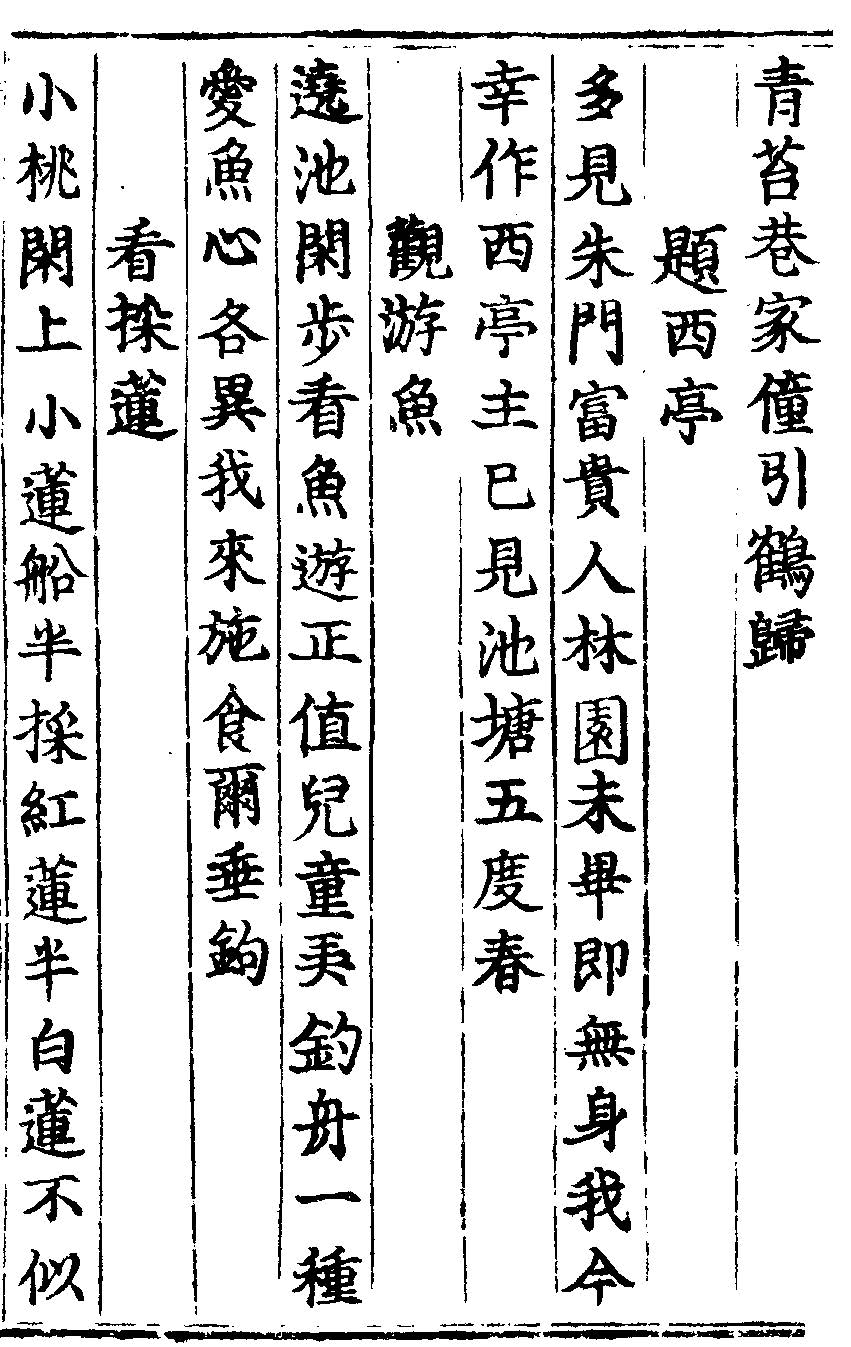 青苔巷家僮引鶴歸
題西亭
多見朱門富貴人林園未畢即無身我今
幸作西亭主已見池塘五度春
觀游魚
遶池閑步看魚遊正值兒童弄釣舟一種
愛魚心各異我來施食爾垂鉤
看採蓮
小桃閑上小蓮船半採紅蓮半白蓮不似